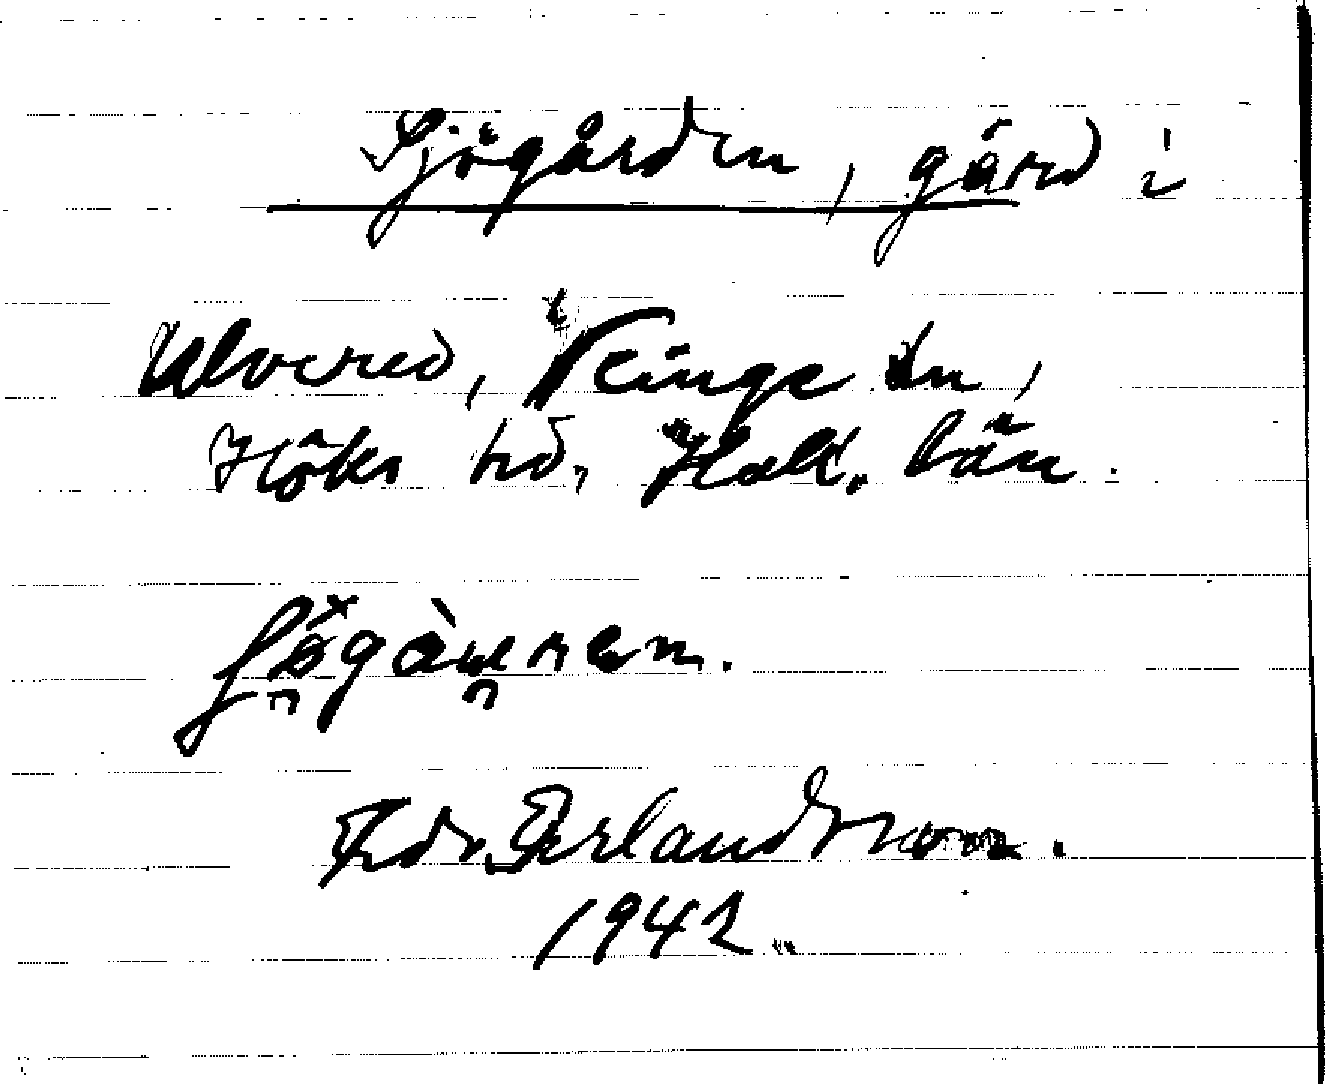 Sjögården, gård i
Ulvered, Veinge sn,
Höks hd, Hall. län.
Erlandsson.
1942.